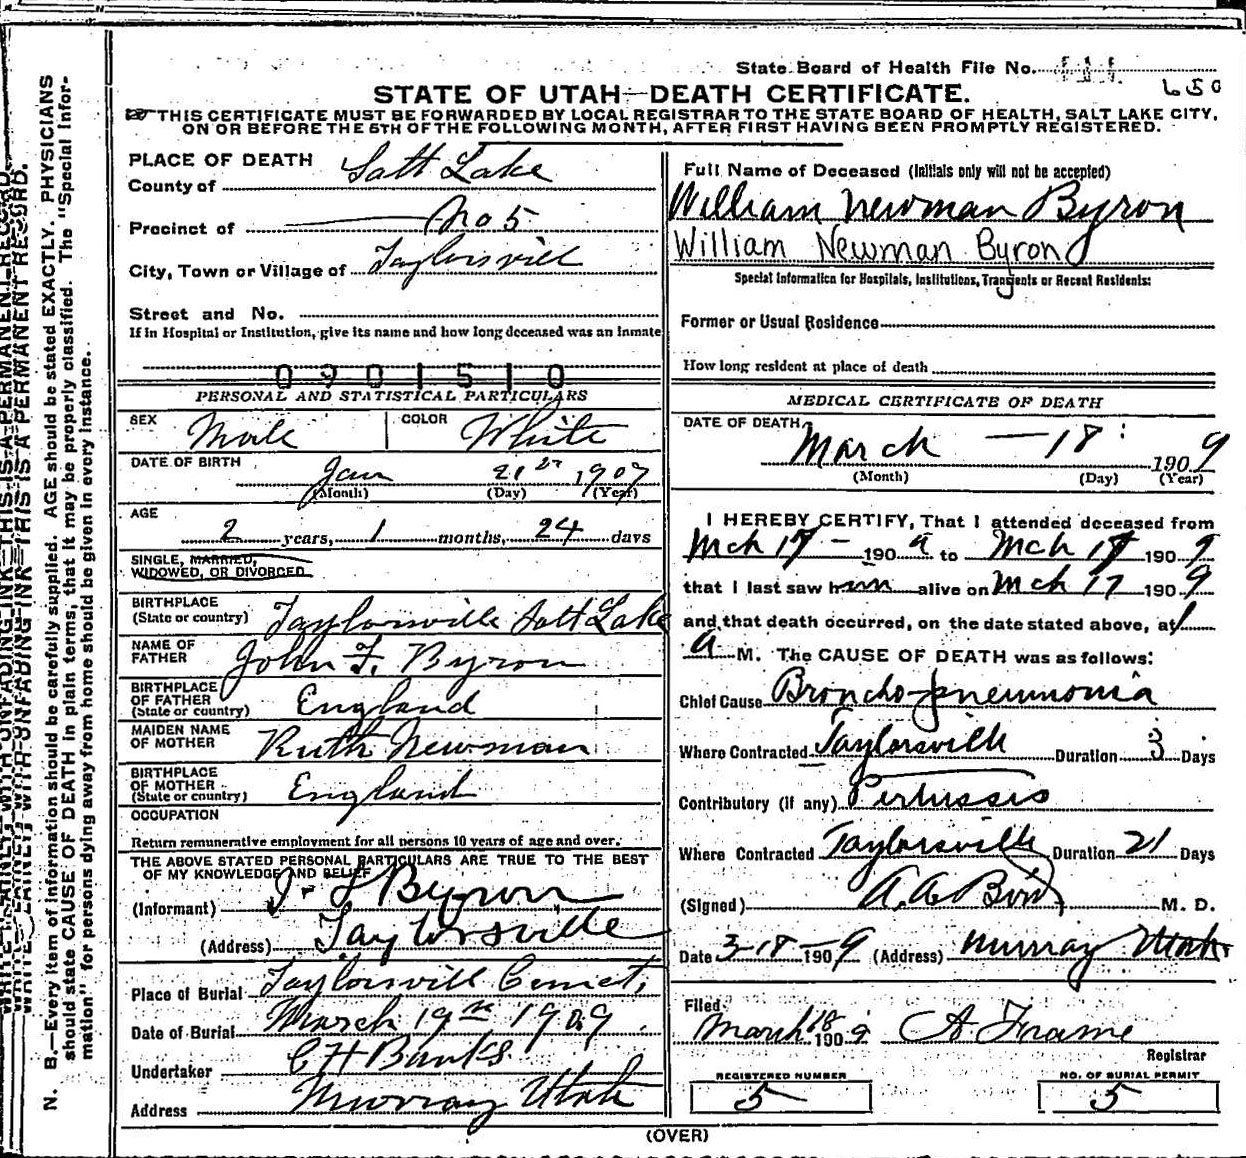 State Board of Health File No.
650
STATE OF UTAH—DEATH CERTIFICATE.
THIS CERTIFICATE MUST BE FORWARDED BY LOCAL REGISTRAR TO THE STATE BOARD OF HEALTH, SALT LAKE CITY,
ON OR BEFORE THE 5TH OF THE FOLLOWING MONTH, AFTER FIRST HAVING BEEN PROMPTLY REGISTERED.
PLACE OF DEATH
County of Salt Lake
Precinct of No 5
City, Town or Village of Taylorsvill
Street and No.
If in Hospital or Institution, give its name and how long deceased was an inmate
0901510
PERSONAL AND STATISTICAL PARTICULARS
SEX Male COLOR White
DATE OF BIRTH Jan 21 1907
(Month) (Day) (Year)
AGE
2 years, 1 months, 24 days
SINGLE, MARRIED,
WIDOWED, OR DIVORCED
BIRTHPLACE
(State or country) Taylorsville Salt Lake
NAME OF
FATHER John F. Byron
BIRTHPLACE
OF FATHER
(State or country) England
MAIDEN NAME
OF MOTHER Ruth Newman
BIRTHPLACE
OF MOTHER
(State or country) England
OCCUPATION
Return remunerative employment for all persons 10 years of age and over.
THE ABOVE STATED PERSONAL PARTICULARS ARE TRUE TO THE BEST
OF MY KNOWLEDGE AND BELIEF
(Informant) Byron
(Address) Taylorsville
Place of Burial Taylorsvill Cemet,
Date of Burial March 19th 1909
Undertaker C H Banks
Address Murray Utah
Full Name of Deceased (Initials only will not be accepted)
William Newman Byron
William Newman Byron
Special Information for Hospitals, Institutions, Transients or Recent Residents:
Former or Usual Residence
How long resident at place of death
MEDICAL CERTIFICATE OF DEATH
DATE OF DEATH
March — 18 1909
(Month) (Day) (Year)
I HEREBY CERTIFY, That I attended deceased from
Mch 17 — 1909 to Mch 17 1909
that I last saw him alive on Mch 17 1909
and that death occurred, on the date stated above, at 1
A M. The CAUSE OF DEATH was as follows:
Chief Cause Broncho-pneumonia
Where Contracted Taylorsville Duration 3 Days
Contributory (if any) Pertussis
Where Contracted Taylorsville Duration 21 Days
(Signed) M. D.
Date 3-18-1909 (Address) Murray Utah
Filed
March 18 1909 A Frame
Registrar
REGISTERED NUMBER
5
NO. OF BURIAL PERMIT
5
(OVER)
N. B.—Every item of information should be carefully supplied. AGE should be stated EXACTLY. PHYSICIANS
should state CAUSE OF DEATH in plain terms, that it may be properly classified. The "Special Infor-
mation" for persons dying away from home should be given in every instance.
WRITE PLAINLY WITH UNFADING INK—THIS IS A PERMANENT RECORD.